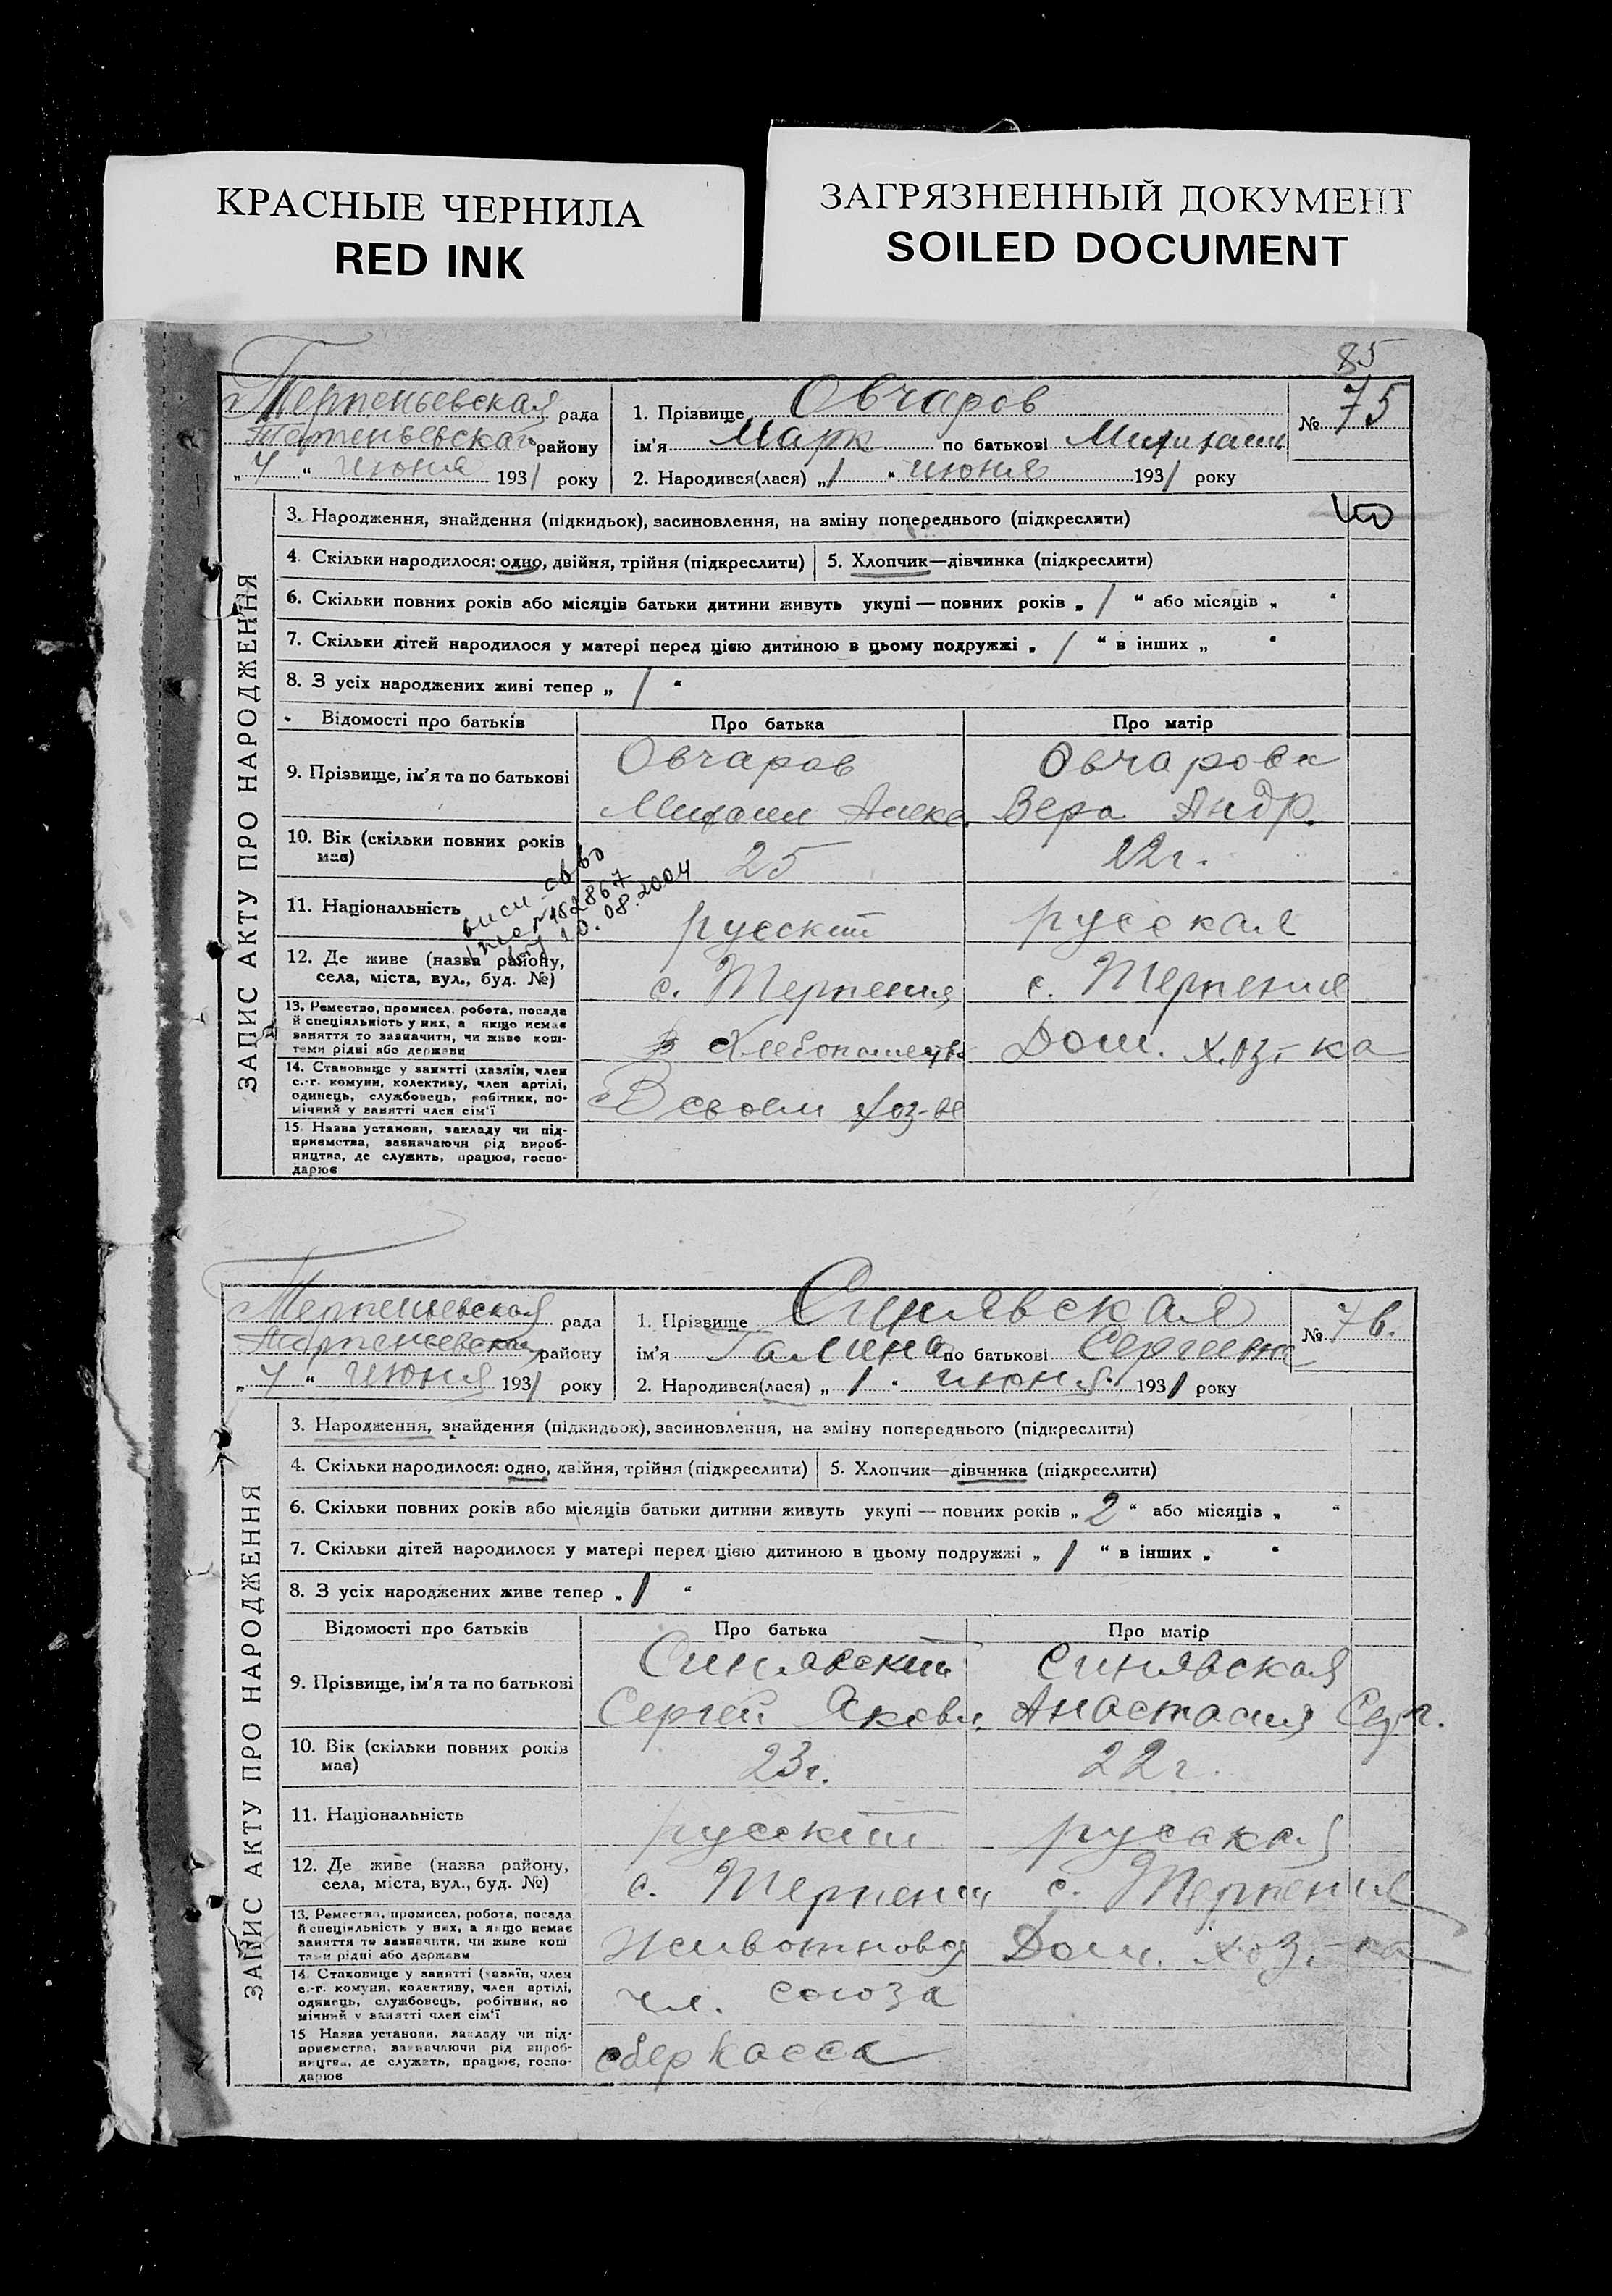 КРАСНЫЕ ЧЕРНИЛА
RED INK
ЗАГРЯЗНЕННЫЙ ДОКУМЕНТ
SOILED DOCUMENT
85
Терпеньевская рада
Терпеньевская району
„ 4 “ июня 1931 року
1. Прізвище Овчаров
ім’я Марк по батькові Михихаил
2. Народився(лася) „ 1 “ июня 1931 року
№ 75
ЗАПИС АКТУ ПРО НАРОДЖЕННЯ
3. Народження, знайдення (підкидьок), засиновлення, на зміну попереднього (підкреслити)
4. Скільки народилося: одно, двійня, трійня (підкреслити) 5. Хлопчик—дівчинка (підкреслити)
6. Скільки повних років або місяців батьки дитини живуть укупі — повних років „ 1 “ або місяців „ “
7. Скільки дітей народилося у матері перед цією дитиною в цьому подружжі „ 1 “ в інших „ “
8. З усіх народжених живі тепер „ 1 “
Відомості про батьків Про батька Про матір
9. Прізвище, ім’я та по батькові
Овчаров Овчарова
Михаил Алекс. Вера Андр.
10. Вік (скільки повних років
має)
25 22г.
10.08.2004
11. Національність русский русская
12. Де живе (назва району,
села, міста, вул., буд. №)
с. Терпения с. Терпение
13. Ремество, промисел, робота, посада
й спеціяльність у них, а якщо немає
заняття то зазначити, чи живе кош-
тами рідні або держави
Хлебопашество Дом. хоз-ка
14. Становище у занятті (хазяїн, член
с.-г. комуни, колективу, член артілі,
одинець, службовець, робітник, по-
мічний у занятті член сім’ї
В своем хоз-ве
15. Назва установи, закладу чи під-
приємства, зазначаючи рід вироб-
ництва, де служить, працює, госпо-
дарює
Терпеньевская рада
Терпеньевская району
„ 4 “ июня 1931 року
1. Прізвище Синявская
ім’я Галина по батькові Сергеевна
2. Народився(лася) „ 1 “ июня 1931 року
№ 76.
ЗАПИС АКТУ ПРО НАРОДЖЕННЯ
3. Народження, знайдення (підкидьок), засиновлення, на зміну попереднього (підкреслити)
4. Скільки народилося: одно, двійня, трійня (підкреслити) 5. Хлопчик—дівчинка (підкреслити)
6. Скільки повних років або місяців батьки дитини живуть укупі — повних років „ 2 “ або місяців „ “
7. Скільки дітей народилося у матері перед цією дитиною в цьому подружжі „ 1 “ в інших „ “
8. З усіх народжених живе тепер „ 1 “
Відомості про батьків Про батька Про матір
9. Прізвище, ім’я та по батькові
Синявский Синявская
Сергей Яковл. Анастасия Серг.
10. Вік (скільки повних років
має)
23г. 22г.
11. Національність русский русская
12. Де живе (назва району,
села, міста, вул., буд. №)
с. Терпения с. Терпение
13. Ремество, промисел, робота, посада
й спеціяльність у них, а якщо немає
заняття то зазначити, чи живе кош
тами рідні або держави
Животновод Дом. хоз.-ка
14. Становище у занятті (хазяїн, член
с.-г. комуни, колективу, член артілі,
одинець, службовець, робітник, по
мічний у занятті член сім’ї
чл. союза
15 Назва установи, закладу чи під-
приємства, зазначаючи рід вироб-
ництва, де служать, працює, госпо-
дарює
сберкасса